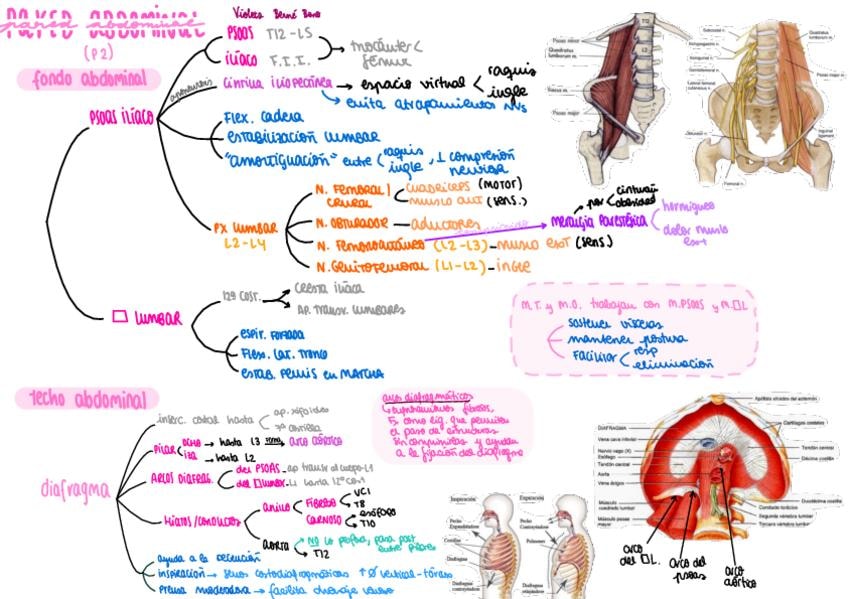 PARED ABDOMINAL
Violeta Berné Boro
(P2)
fondo abdominal
PSOAS ILÍACO
PSOAS T12-L5
ILÍACO F.I.I.
trocánter fémur
aponeurosis
Cintilla iliopectínea → espacio virtual
raquis
ingle
evita atrapamientos NVs
Flex. cadera
estabilización lumbar
"amortiguación" entre raquis ingle, ⊥ compresión
PX LUMBAR
L2-L4
N. Femoral/
crural
cuadriceps (motor)
muslo ant (sens.)
N. Obturador — aductores
N. Femorocutáneo (L2-L3) - muslo ext (sens)
N. Genitofemoral (L1-L2) - ingle
por cinturón
obesidad
meralgia parestésica
hormigueo
dolor muslo
ext
□ LUMBAR
12ª cost.
cresta ilíaca
ap. transv. lumbares
espir. forzada
Flex. lat. tronco
estab. pelvis en MARCHA
M.T. y M.O. trabajan con M.PSOAS y M.□L
sostener vísceras
mantener postura
facilitar
resp
eliminación
Psoas minor
Quadratus lumborum m.
Iliacus m.
Psoas major
T12
L2
Subcostal n.
Iliohypogastric n.
Ilioinguinal n.
Genitofemoral n.
Lateral femoral cutaneous n.
Obturator n.
Femoral n.
Quadratus lumborum m.
Psoas major m.
Inguinal ligament
techo abdominal
diafragma
inserc. costal hasta
ap. xifoides
7ª costilla
pilar
dcho → hasta L3
arco aórtico
izq → hasta L2
ARCOS DIAFRAG.
del PSOAS - ap transv al cuerpo L1
del □lumbar - L1 hasta 12ª cost
Hiatos/conductos
anillo
Fibroso
VCI
T8
carnoso
esófago
T10
aorta
no lo perfora, pasa post
entre pilares
T12
ayuda a la
inspiración → senos costodiafragmáticos ↑Ø vertical - tórax
Prensa moderadora → facilita drenaje venoso
arco diafragmático
fibrosos,
como lig. que permiten
el paso de estructuras
sin comprimirlas y ayudan
a la fijación del diafragma
Inspiración
Espiración
Pecho Expandiéndose
Costillas
Diafragma
Diafragma contrayéndose
Pecho Contrayéndose
Pulmones
Diafragma
Diafragma relajándose
DIAFRAGMA
Vena cava inferior
Nervio vago (X)
Esófago
Tendón central
Aorta
Vena ácigos
Músculo cuadrado lumbar
Músculo psoas mayor
Apófisis xifoides del esternón
Cartílagos costales
Tendón central
Décima costilla
Duodécima costilla
Conducto torácico
Segunda vértebra lumbar
Tercera vértebra lumbar
arco
del □L.
arco del
psoas
arco
aórtico